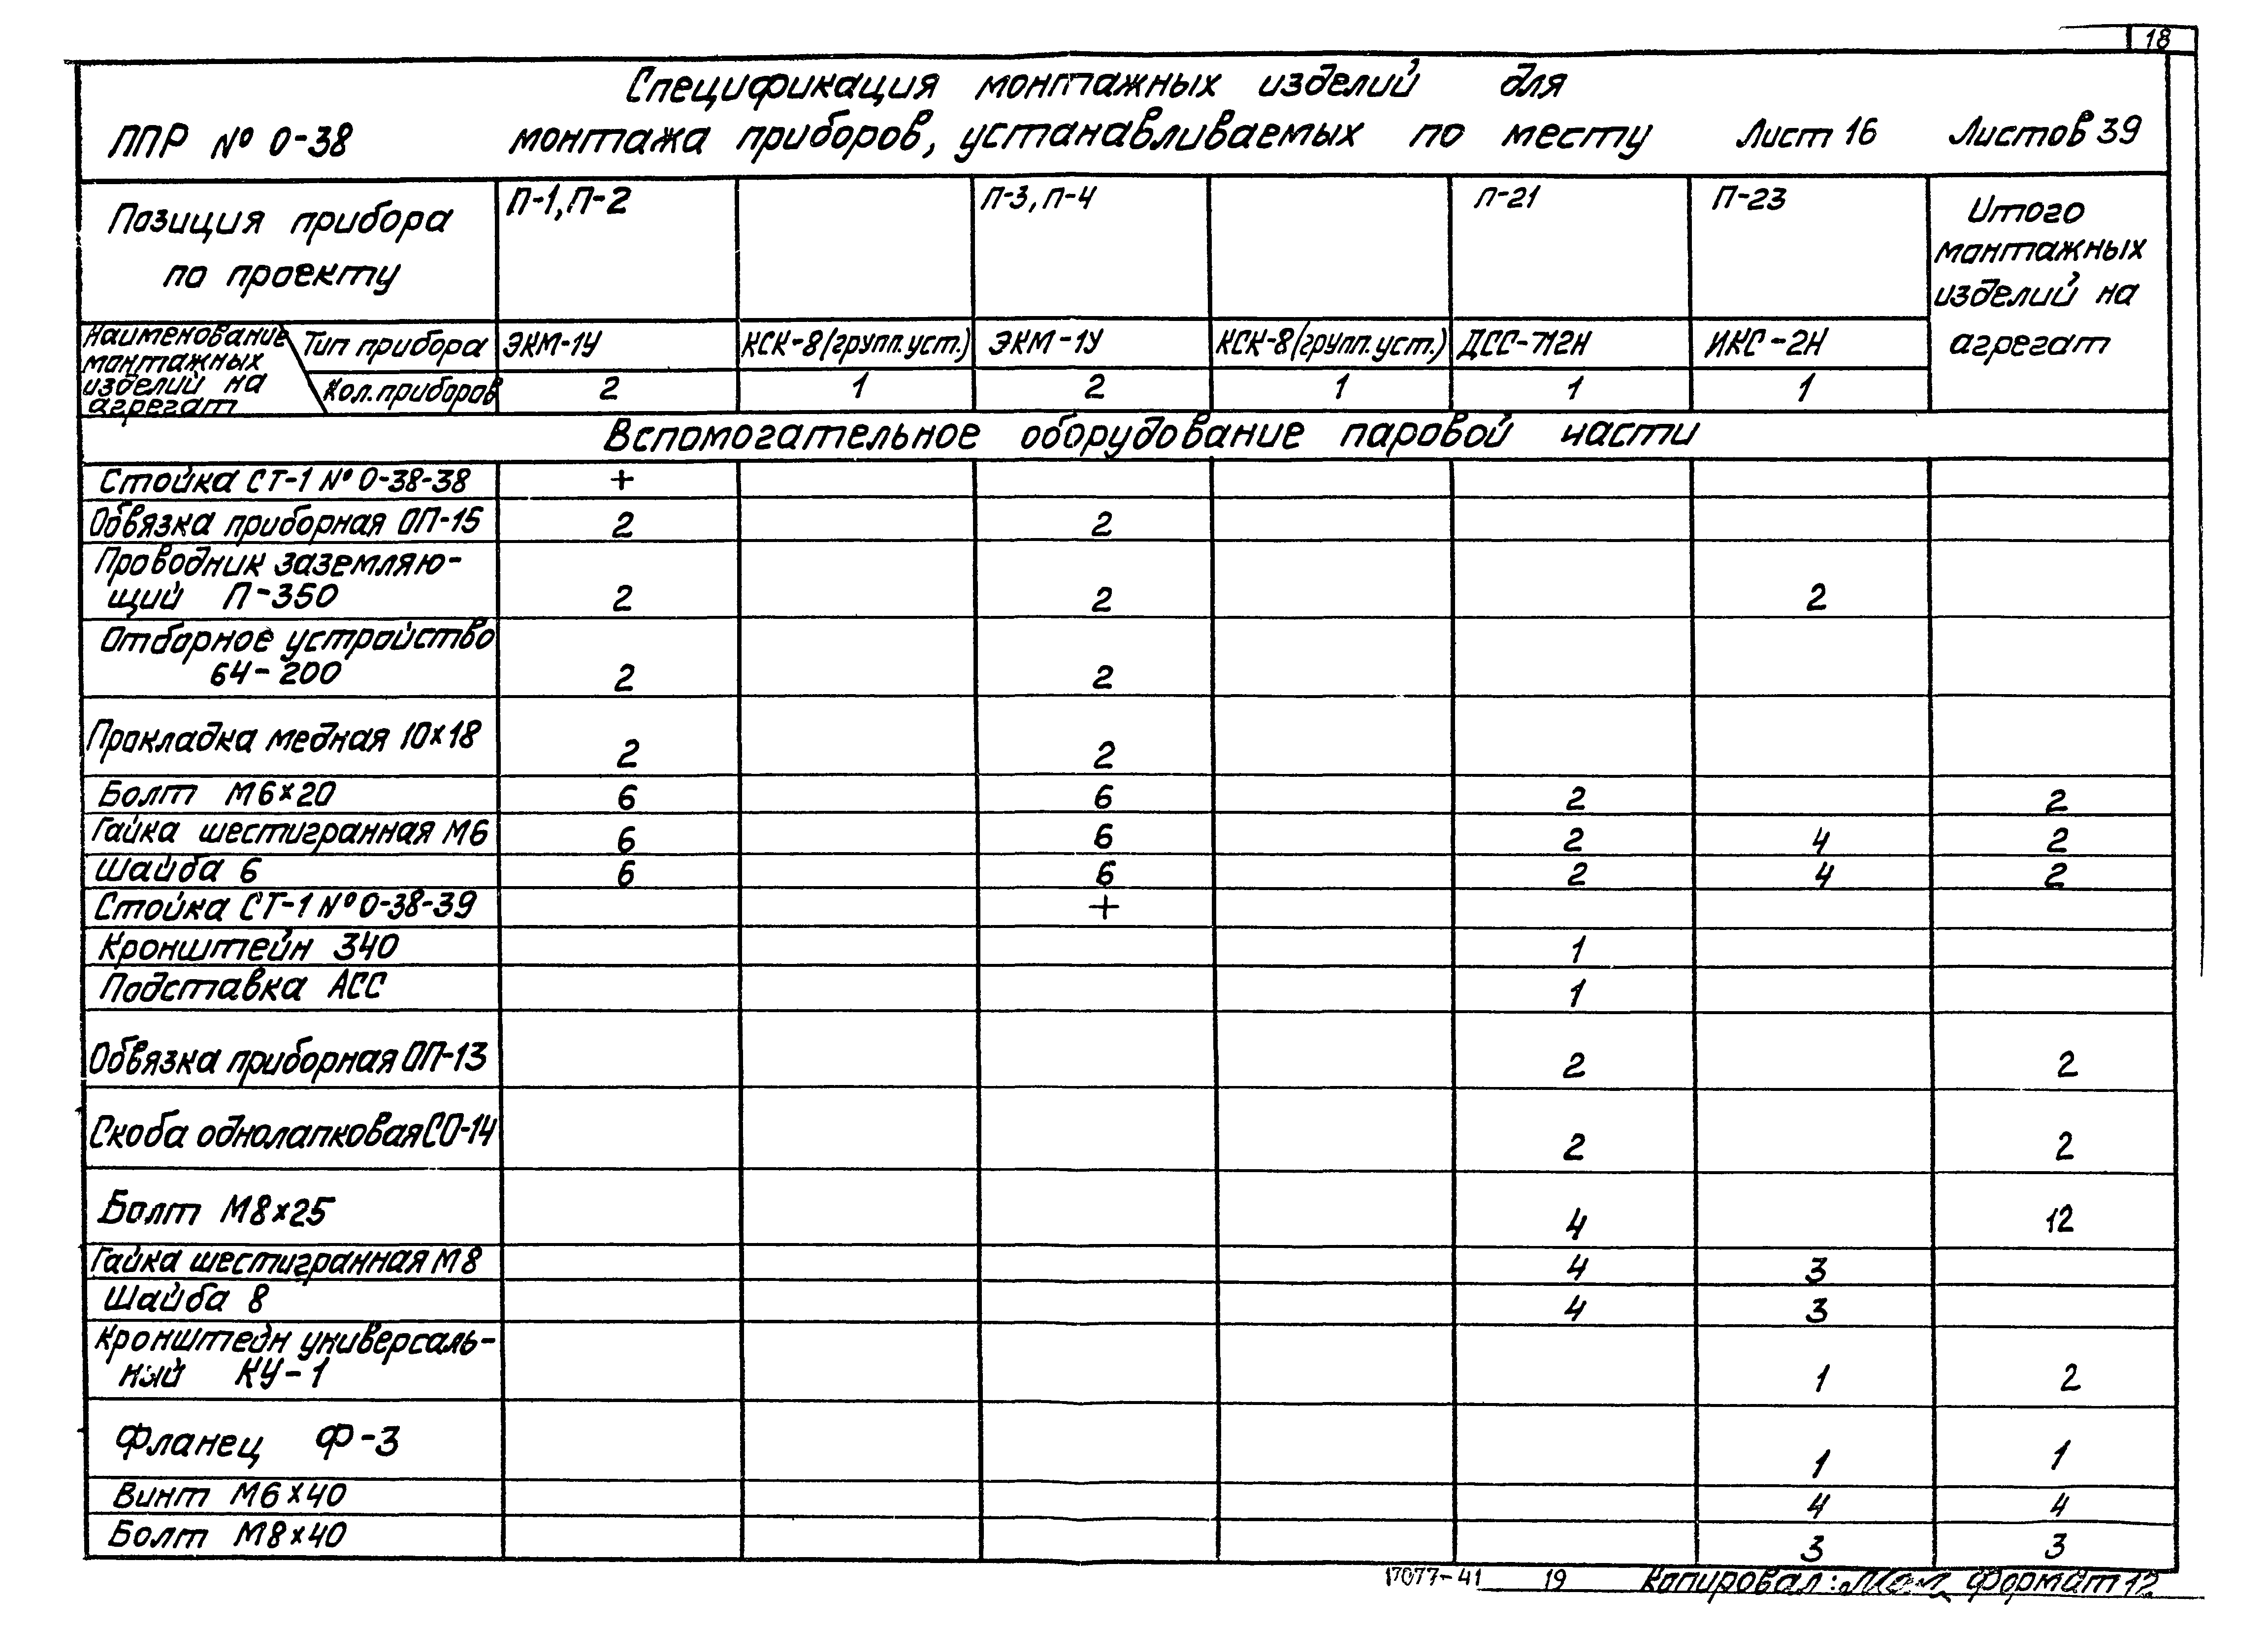 18
Спецификация монтажных изделий для
ППР № 0-38 монтажа приборов, устанавливаемых по месту Лист 16 Листов 39
Позиция прибора по проекту П-1, П-2 П-3, П-4 П-21 П-23 Итого монтажных изделий на агрегат
Наименование монтажных изделий на агрегат
Тип прибора ЭКМ-1У КСК-8 (групп. уст.) ЭКМ-1У КСК-8 (групп. уст.) ДСС-712Н ИКС-2Н
Кол. приборов 2 1 2 1 1 1
Вспомогательное оборудование паровой части
Стойка СТ-1 № 0-38-38 +
Обвязка приборная ОП-15 2 2
Проводник заземляю-
щий П-350 2 2 2
Отборное устройство
64-200 2 2
Прокладка медная 10×18 2 2
Болт М6×20 6 6 2 2
Гайка шестигранная М6 6 6 2 4 2
Шайба 6 6 6 2 4 2
Стойка СТ-1 № 0-38-39 +
Кронштейн 340 1
Подставка АСС 1
Обвязка приборная ОП-13 2 2
Скоба однолапковая СО-14 2 2
Болт М8×25 4 12
Гайка шестигранная М8 4 3
Шайба 8 4 3
Кронштейн универсаль-
ный КУ-1 1 2
Фланец Ф-3 1 1
Винт М6×40 4 4
Болт М8×40 3 3
17077-41 19 Копировал: Формат 12